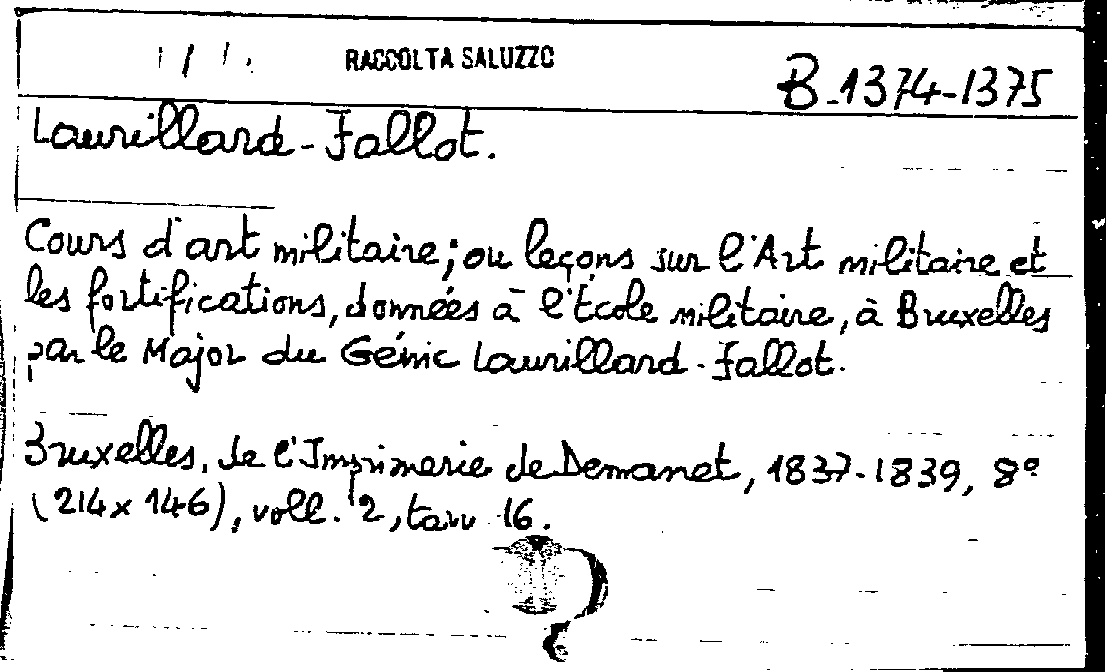 RACCOLTA SALUZZO
B.1374-1375
Laurillard-Fallot.
Cours d'art militaire; ou leçons sur l'Art militaire et
les fortifications, données à l'École militaire, à Bruxelles
par le Major du Génie Laurillard-Fallot.
Bruxelles, de l'Imprimerie de Demanet, 1837-1839, 8º
(214x146), voll. 2, tavv 16.